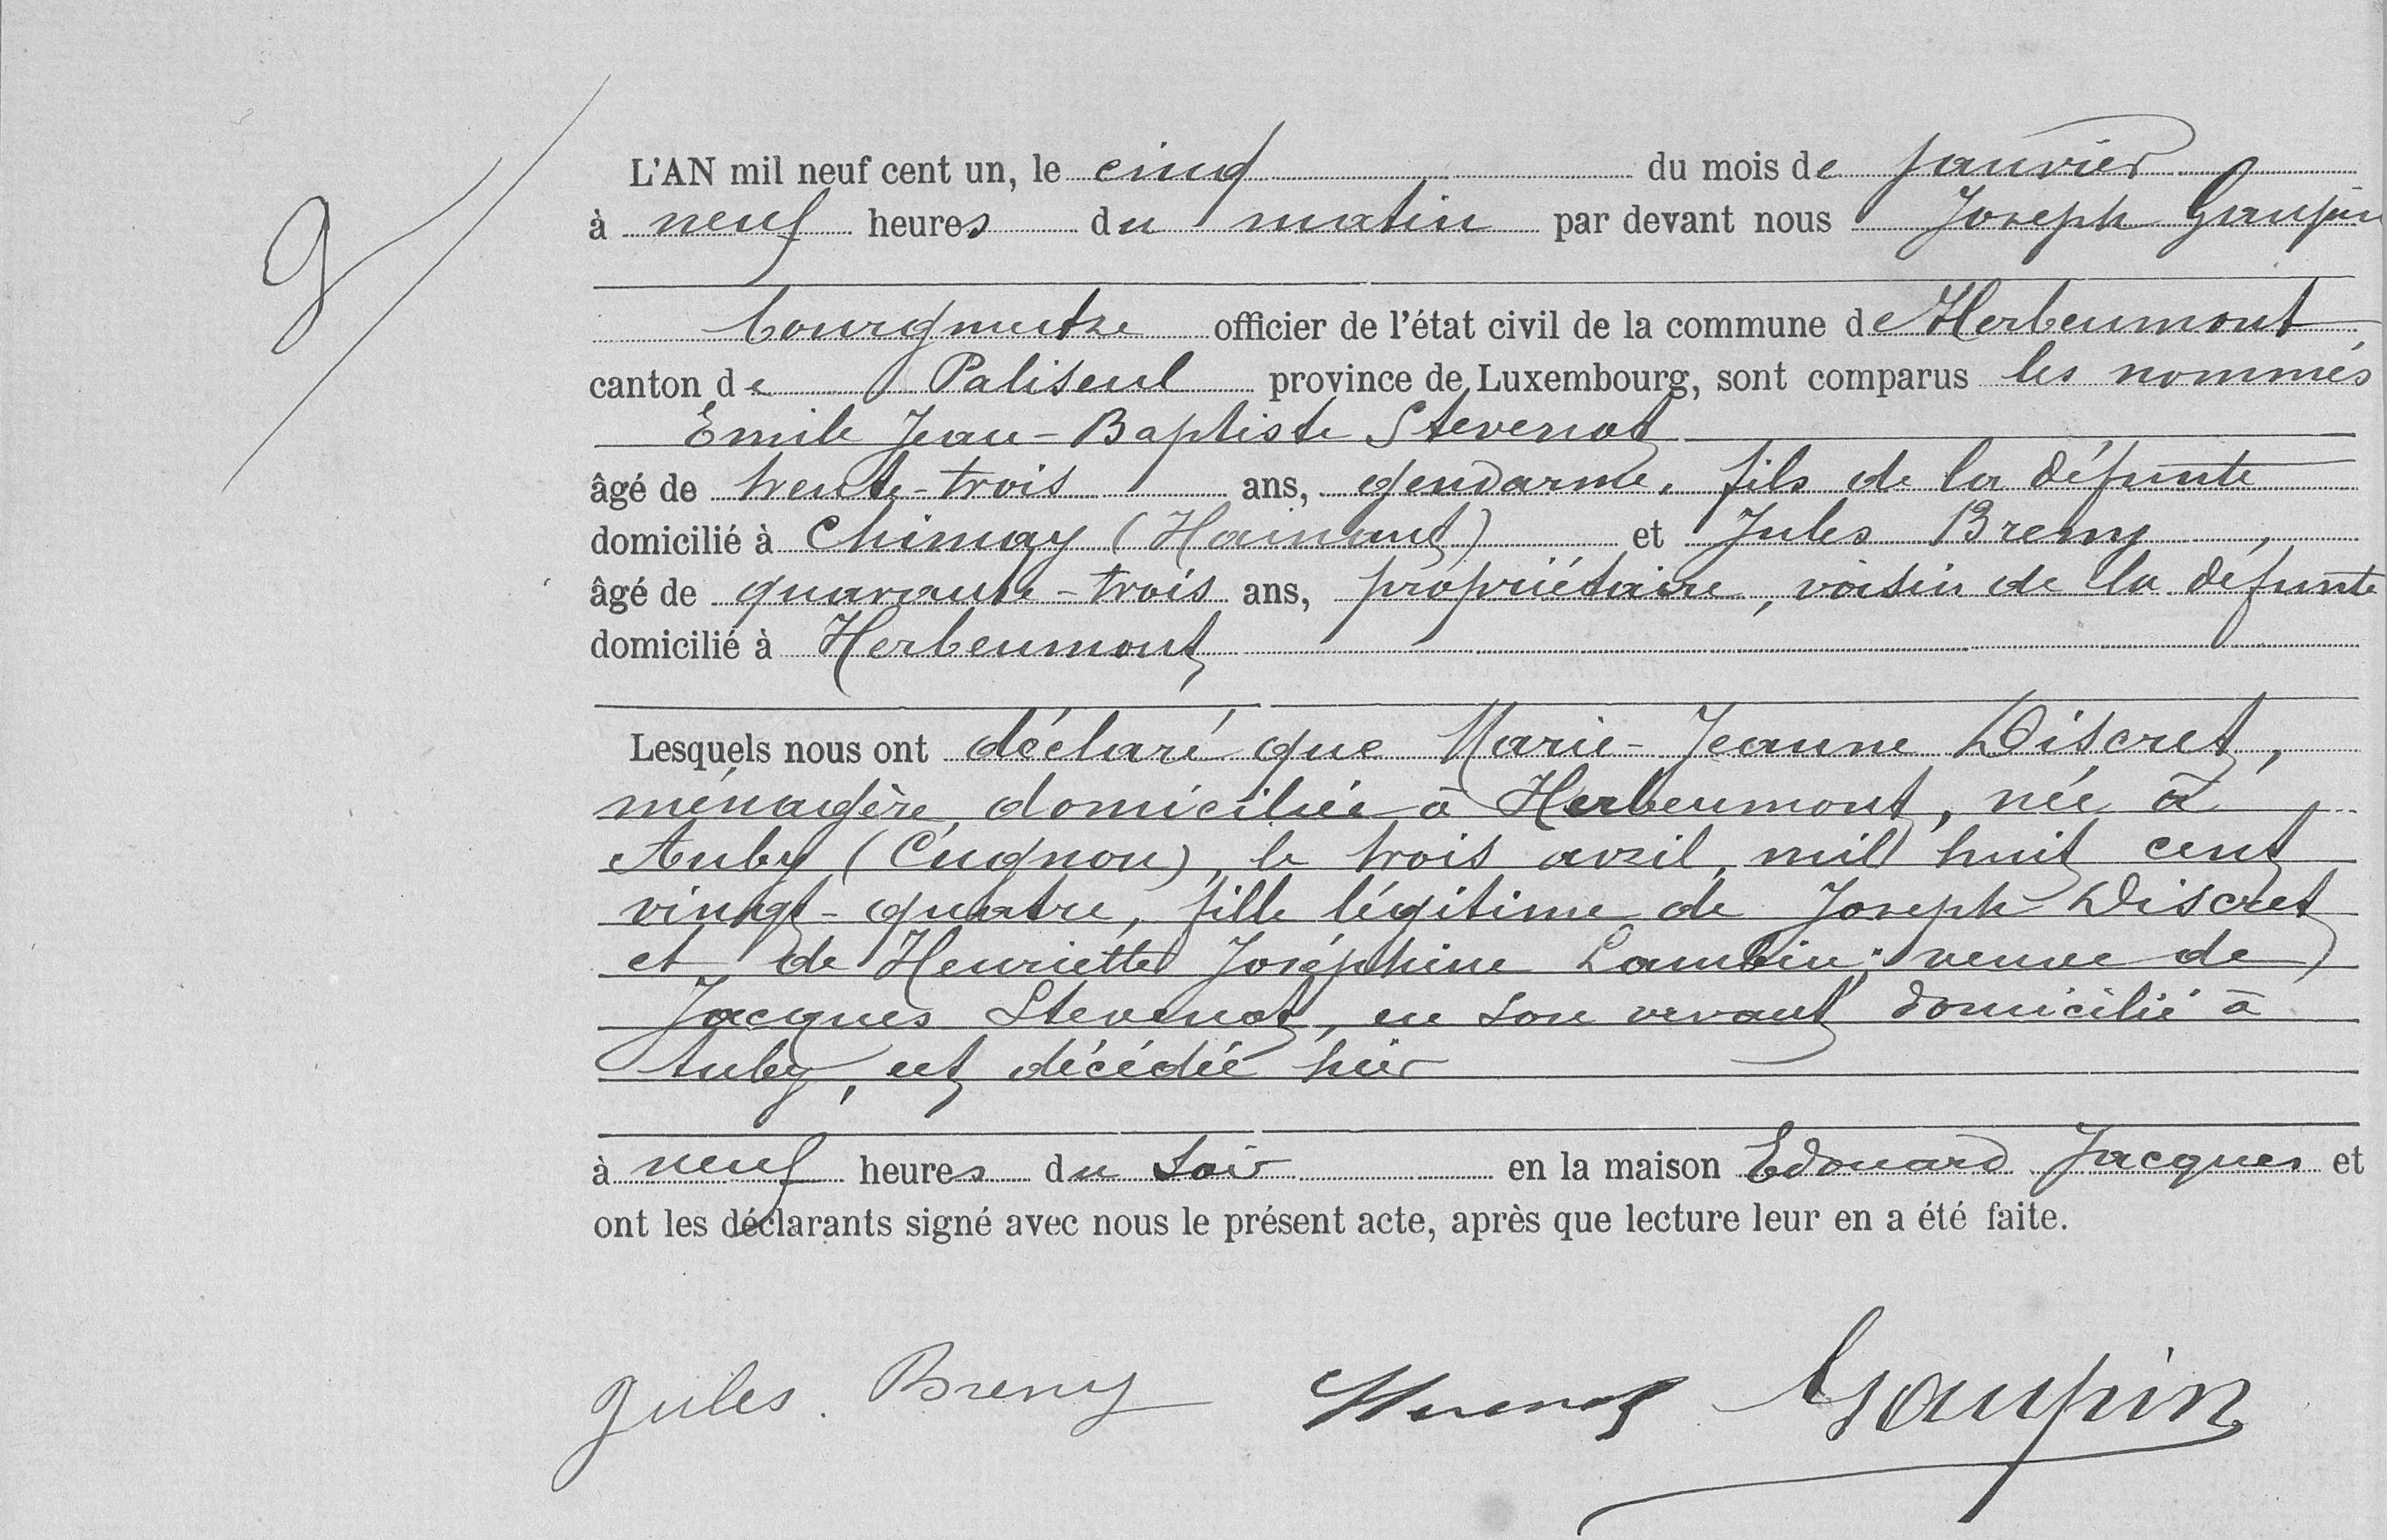 L'AN mil neuf cent un, le cinq du mois de janvier
à neuf heures du matin par devant nous Joseph Gaupin
bourgmestre officier de l'état civil de la commune de Herbeumont
canton de Paliseul province de Luxembourg, sont comparus les nommés
Emile Jean-Baptiste Stevenot
âgé de trente-trois ans, gendarme, fils de la défunte
domicilié à Chimay (Hainaut) et Jules Breny,
âgé de quarante-trois ans, propriétaire, voisin de la défunte
domicilié à Herbeumont
Lesquels nous ont déclaré que Marie-Jeanne Discret,
ménagère, domiciliée à Herbeumont, née à
Auby (Cugnon), le trois avril mil huit cent
vingt-quatre, fille légitime de Joseph Discret
et de Henriette Joséphine Lambin; veuve de
Jacques Stevenot, en son vivant domicilié à
Auby, est décédée hier
à neuf heures du soir en la maison Edouard Jacques et
ont les déclarants signé avec nous le présent acte, après que lecture leur en a été faite.
Jules Breny Stevenot Gaupin